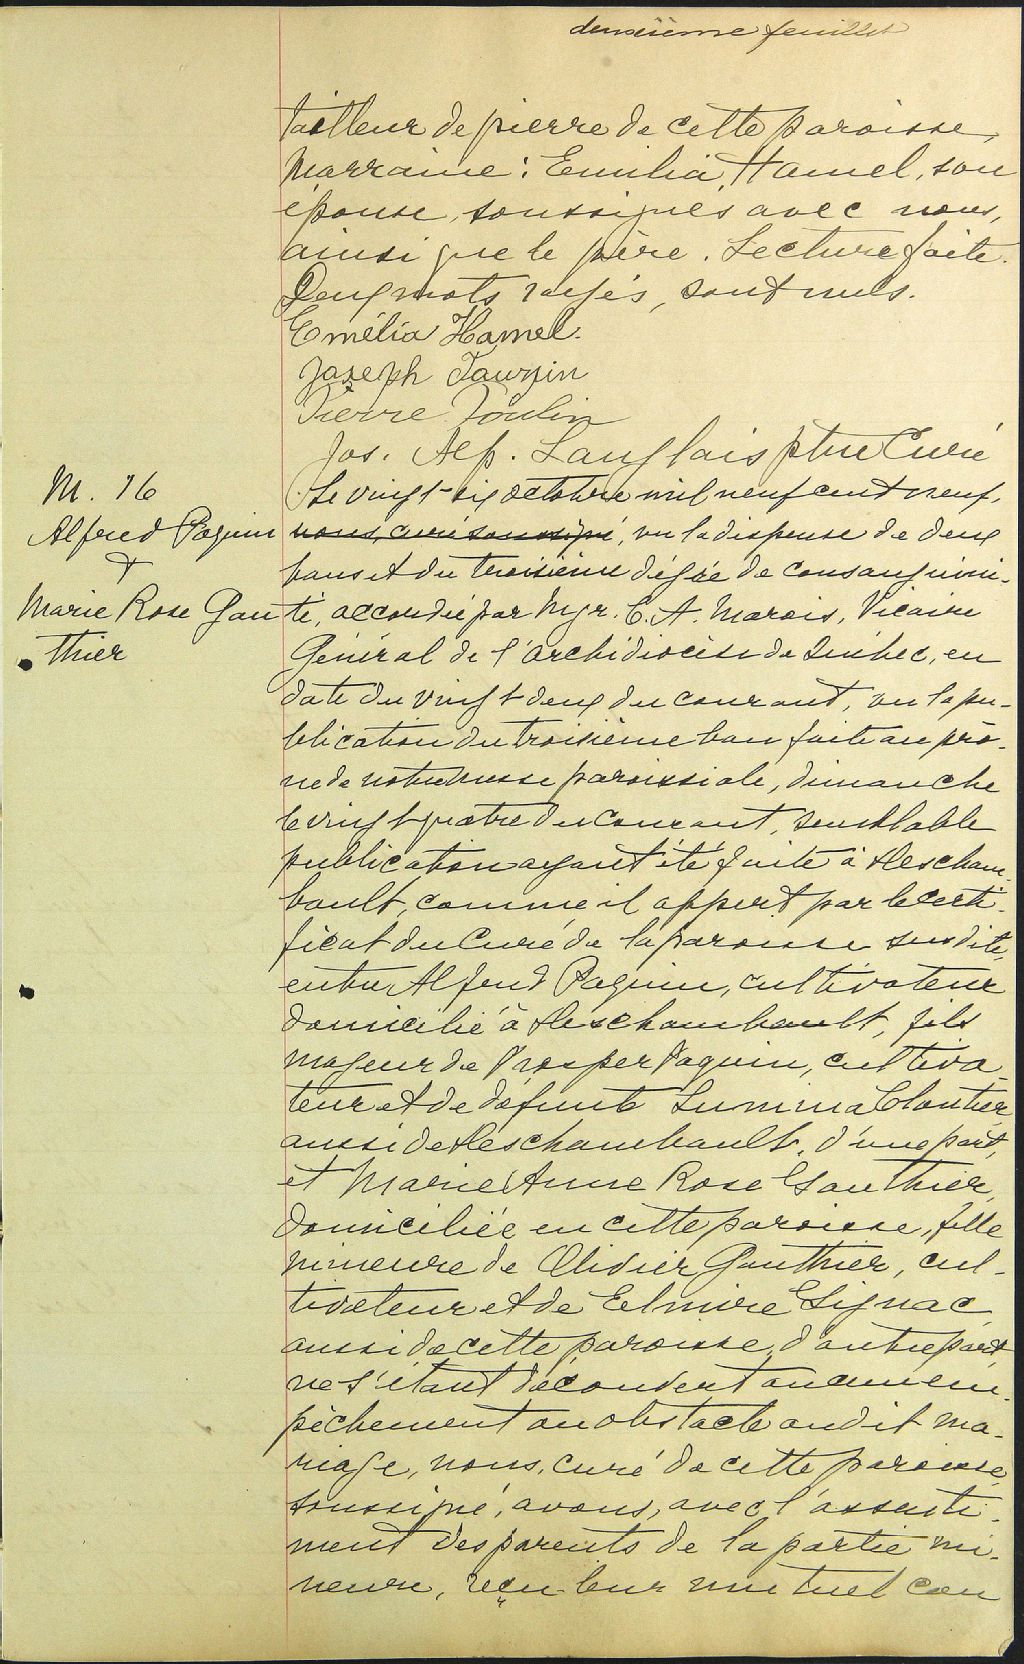 deuxième feuillet
tailleur de pierre de cette paroisse,
Marraine : Emilia Hamel, son
épouse, soussignés avec nous,
ainsi que le père. Lecture faite.
Deux mots rayés, sont nuls.
Emélia Hamel.
Joseph
Pierre
Jos. Alp. Langlais ptre Curé
M. 16
Alfred Paquin
&
Marie Rose Gau
thier
Le vingt-six octobre mil neuf cent neuf,
nous, curé soussigné, vu la dispense de deux
bans et du troisième dégré de consanguini-
té, accordée par Mgr. C. A. Marois, Vicaire
Général de l'archidiocèse de Québec, en
date du vingt deux du courant, vu la pu-
blication du troisième ban faite au prô-
ne de notre messe paroissiale, dimanche
le vingt quatre du courant, semblable
publication ayant été faite à Descham-
bault, comme il appert par le certi-
ficat du Curé de la paroisse susdite,
entre Alfred Paquin, cultivateur
domicilié à Deschambault, fils
majeur de Prosper Paquin, cultiva-
teur et de défunte Cloutier,
aussi de Deschambault, d'une part,
et Marie Anne Rose Gauthier,
domiciliée en cette paroisse, fille
mineure de Olivier Gauthier, cul-
tivateur et de Elmire Gignac
aussi de cette paroisse, d'autre part
ne s'étant découvert aucun em-
pêchement ou obstacle au dit ma-
riage, nous, curé de cette paroisse
soussigné, avons, avec l'assenti-
ment des parents de la partie mi-
neure, reçu leur mutuel con